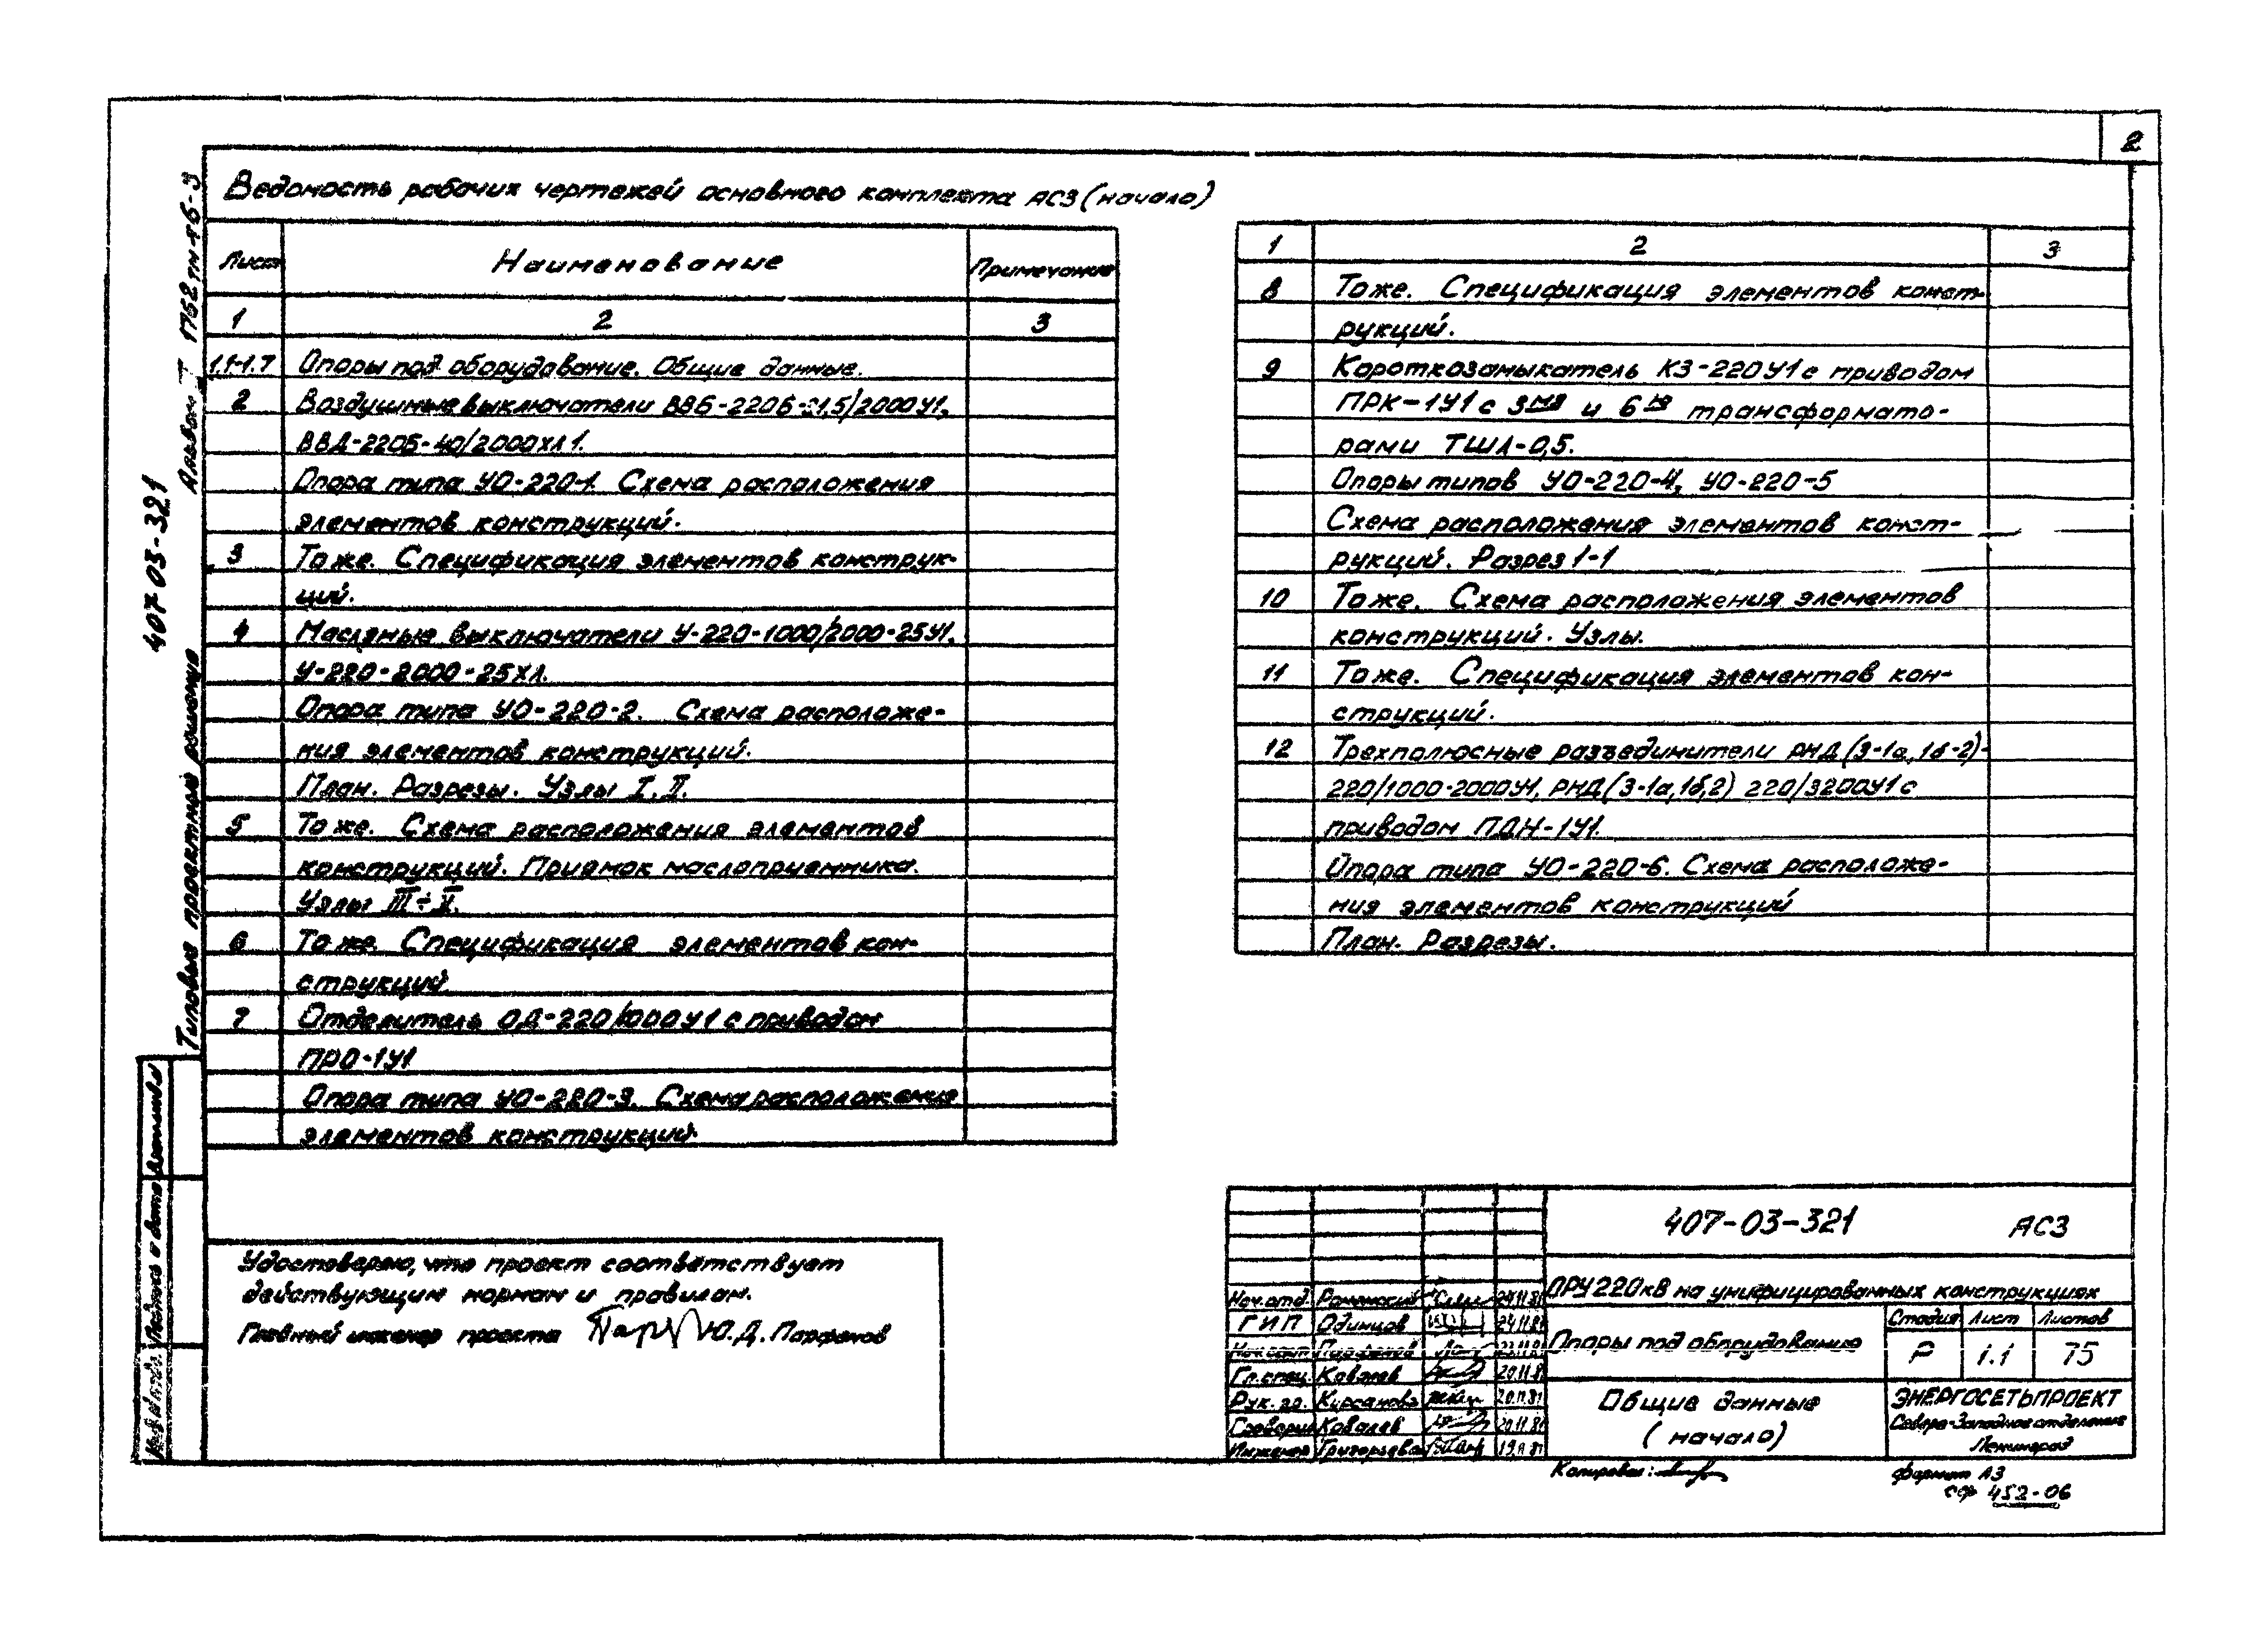 2
Ведомость рабочих чертежей основного комплекта АС3 (начало)
Лист Наименование Примечание
1 2 3
1.1-1.7 Опоры под оборудование. Общие данные.
2 Воздушные выключатели ВВБ-220Б-31,5/2000У1,
ВВД-220Б-40/2000ХЛ1.
Опора типа УО-220-1. Схема расположения
элементов конструкций.
3 То же. Спецификация элементов конструк-
ций.
4 Масляные выключатели У-220-1000/2000-25У1,
У-220-2000-25ХЛ.
Опора типа УО-220-2. Схема расположе-
ния элементов конструкций.
План. Разрезы. Узлы I, II.
5 То же. Схема расположения элементов
конструкций. Приямок маслоприемника.
Узлы III÷V.
6 То же. Спецификация элементов кон-
струкций.
7 Отделитель ОД-220/1000У1 с приводом
ПРО-1У1
Опора типа УО-220-3. Схема расположение
элементов конструкций.
1 2 3
8 То же. Спецификация элементов конст-
рукций.
9 Короткозамыкатель КЗ-220У1 с приводом
ПРК-1У1 с 3мя и 6ю трансформато-
рами ТШЛ-0,5.
Опоры типов УО-220-4, УО-220-5
Схема расположения элементов конст-
рукций. Разрез 1-1
10 То же. Схема расположения элементов
конструкций. Узлы.
11 То же. Спецификация элементов кон-
струкций.
12 Трехполюсные разъединители РНД (3-1а, 1б-2)-
220/1000-2000У1, РНД (3-1а,1б,2) 220/3200У1 с
приводом ПДН-1У1.
Опора типа УО-220-6. Схема расположе-
ния элементов конструкций
План. Разрезы.
Удостоверяю, что проект соответствует
действующим нормам и правилам.
Главный инженер проекта Ю.Д. Парфенов
407-03-321 АС3
ОРУ 220кВ на унифицированных конструкциях
Опоры под оборудование
Стадия Лист Листов
Р 1.1 75
Общие данные
(начало)
ЭНЕРГОСЕТЬПРОЕКТ
Северо-Западное отделение
Ленинград
Нач.отд. 24.11.81
ГИП Одинцов 24.11.81
Парфенов
Гл.спец. Ковалев 20.11.81
Рук. гр. Кирсанова 20.11.81
Ковалев 20.11.81
Инженер Григорьева 19.11.81
Копировал:
Формат А3
сф 452-06
Типовые проектные решения 407 03-321 Альбом I 1752 тм-т6-3
Подпись и дата